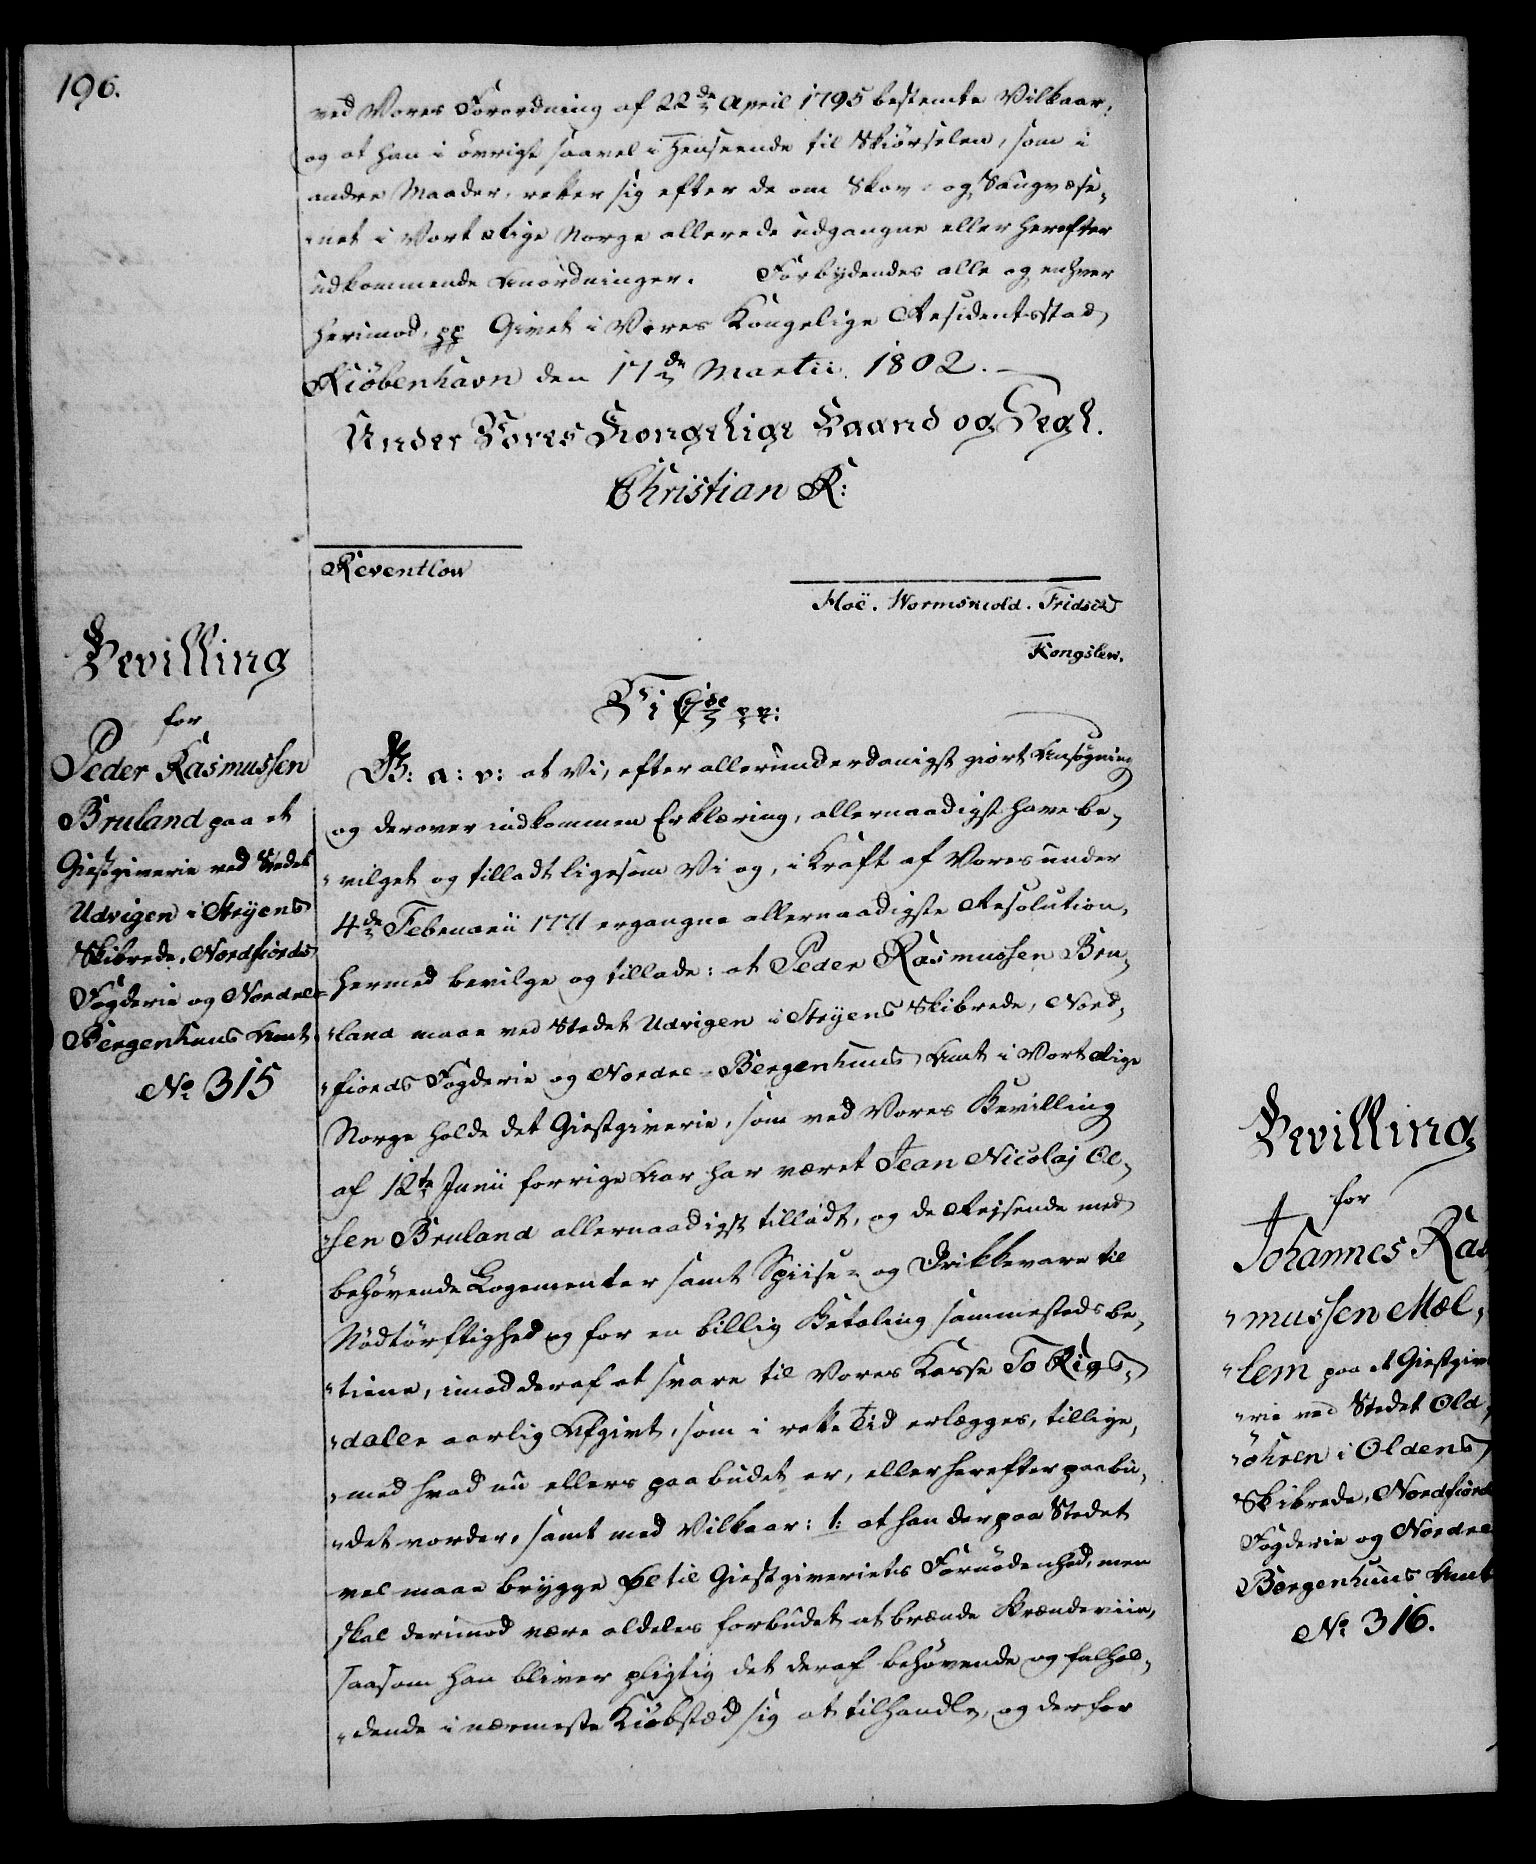 196.
ved Vores Forordning af 22de April 1795 bestemte Vilkaar,
og at han i övrigt saavel i Henseende til Skiörselen, som i
andre Maader, retter sig efter de om Skov- og Saugvæse-
net i Vort Rige Norge allerede udgangne eller herefter
udkommende Anordninger. Forbydendes alle og enhver
herimod, pp Givet i Vores Kongelige Residentsstad
Kiöbenhavn den 17de Martii 1802.
Under Vores Kongelige Haand og Segl.
Christian R:
Reventlow
Hoë. Wormskiold. Fridsch
Kongslew.
Bevilling
for
Peder Rasmussen
Bruland paa et
Giestgiverie ved Stedet
Udvigen i Stryens
Skibrede, Nordfiords
Fogderie og Nordre
Bergenhuus Amt.
No. 315
Vi C 7de pp:
G: a: v: at Vi, efter allerunderdanigst giort Ansøgning
og derover indkommen Erklæring, allernaadigst have be-
vilget og tilladt ligesom Vi og, i Kraft af Vores under
4de Februarii 1771 ergangne allernaadigste Resolution,
hermed bevilge og tillade: at Peder Rasmussen Bru-
land maae ved Stedet Udvigen i Stryens Skibrede, Nord-
fiords Fogderie og Nordre Bergenhuus Amt i Vort Rige
Norge holde det Giestgiverie, som ved Vores Bevilling
af 12te Junii forrige Aar har været Jean Nicolaj Ol-
sen Bruland allernaadigst tilladt, og de Rejsende med
behövende Logementer samt Spiise- og Drikkevare til
Nödtörftighed og for en billig Betaling sammesteds be-
tiene, imod deraf at svare til Vores Kasse To Rigs-
daler aarlig Afgivt, som i rette Tid erlægges, tillige-
med hvad nu ellers paabudet er, eller herefter paabu-
det vorder, samt med Vilkaar: 1: at han der paa Stedet
vel maae brygge Øl til Giestgiveriets Fornödenhed, men
skal derimod være aldeles forbudet at brænde Brændeviin,
saasom han bliver pligtig det deraf behövende og falhol-
dende i nærmeste Kiöbstæd sig at tilhandle, og derfor
Bevilling
for
Johannes Ras-
mussen Mæl-
lem paa et Giestgive-
rie ved Stedet Old-
öhren i Oldens
Skibrede, Nordfiords
Fogderie og Nordre
Bergenhuus Amt
No. 316.